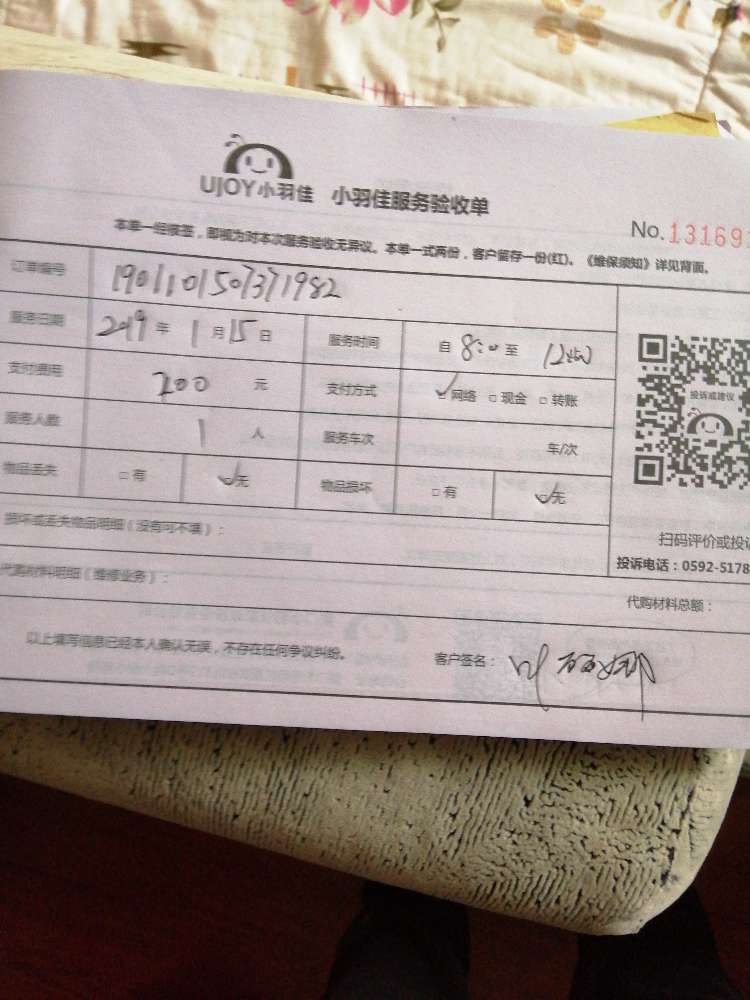 UJOY小羽佳 小羽佳服务验收单
No.13169
本单一经接签，即视为对本次服务验收无异议。本单一式两份，客户留存一份(红)。《维保须知》详见背面。
订单编号 1901101507371982
服务日期 2019年1月15日 服务时间 自8:00至12:00
支付费用 200元 支付方式 网络 现金 转账
服务人数 1人 服务车次 车/次
物品丢失 有 无 物品损坏 有 无
投诉或建议
损坏或丢失物品明细（没有可不填）：
扫码评价或投诉
投诉电话：0592-5178
代购材料明细（维修业务）：
代购材料总额：
以上填写信息已经本人确认无误，不存在任何争议纠纷。 客户签名：